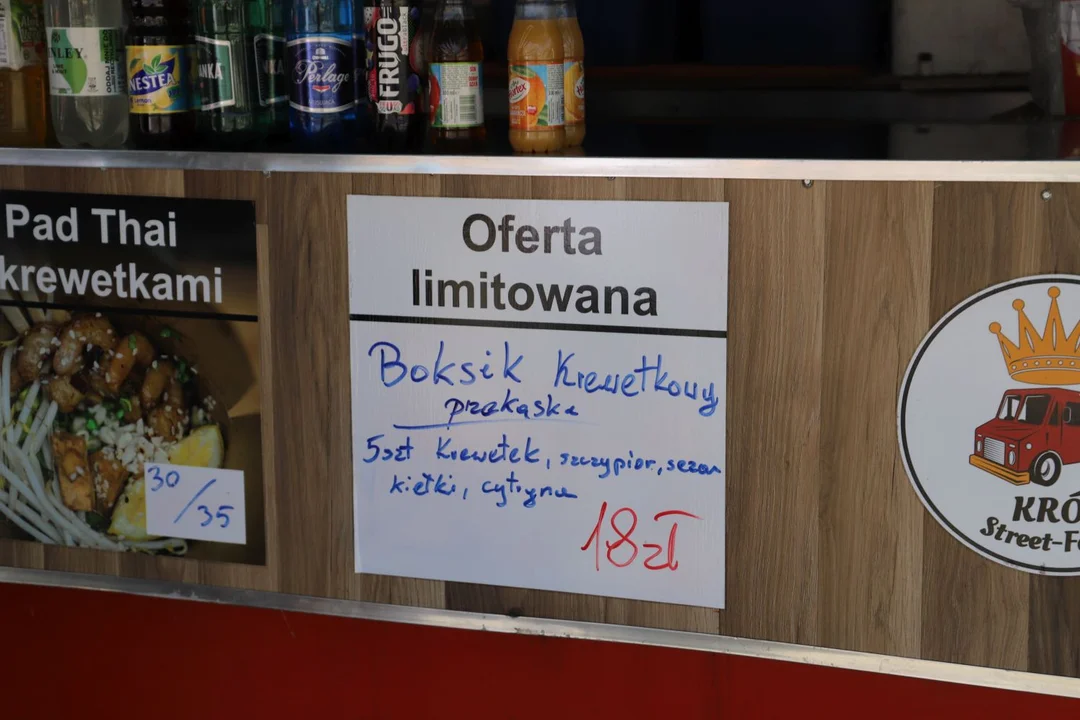 NLEY
NESTEA
NKA
Perlage
FRUGO
Hortex
Pad Thai
krewetkami
30/35
Oferta
limitowana
Boksik Krewetkowy
przekąska
5szt Krewetek, szczypior, sezam
kiełki, cytryna
18zł
KRÓ
Street-Fo